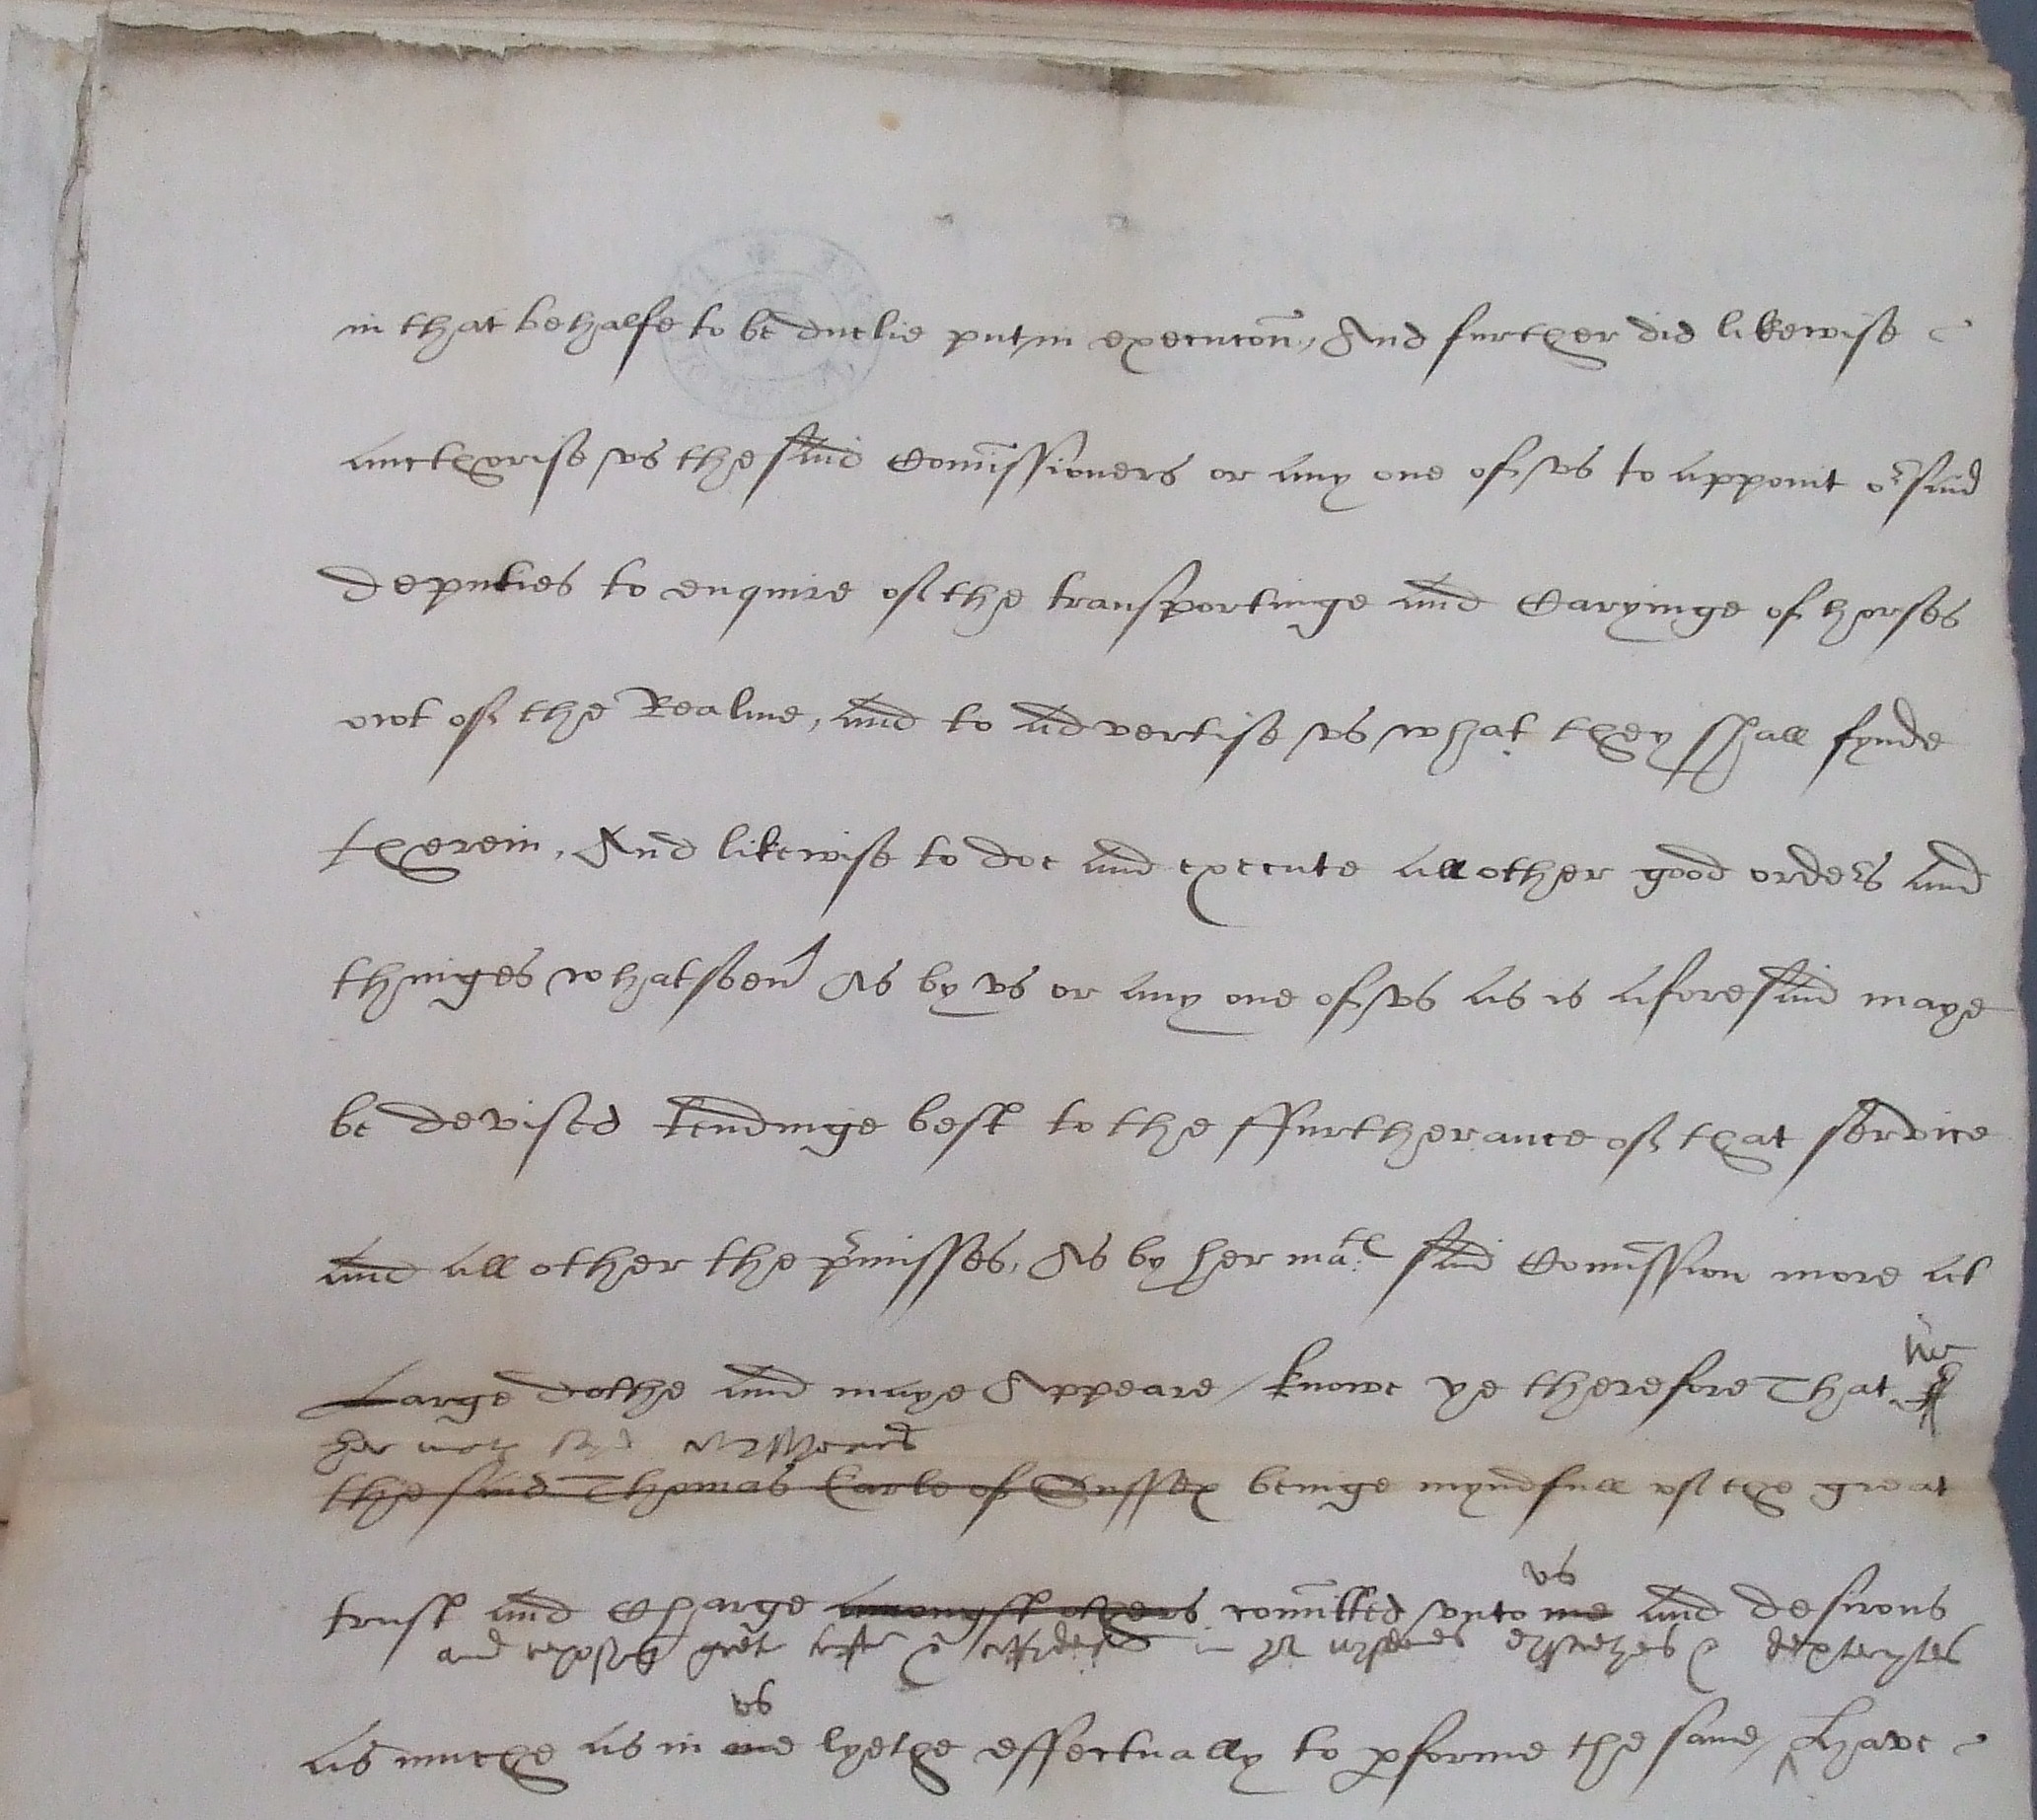 in that behalfe to be duelie put in execucōn, And further did likewise
aucthorise vs the said Com̄issioners or any one of vs to appoint oʳ said
deputies to enquire of the transportinge and Caryinge of horses
owt of the Realme, and to advertise vs what they shall fynde
therein, And likewise to doe and execute all other good orders and
thinges whatsoeuʳ As by vs or any one of vs as is aforesaid maye
be devised tendinge best to the ffurtherance of that service
and all other the p̄misses, As by her maᵗⁱᵉ said Com̄ission more at
we
Large dothe and maye Appeare / knowe ye therefore That I
her said Com̄issioners
the said Thomas Earle of Sussex beinge myndfull of the great
vs
trust and Charge amongst others com̄itted vnto me and desirous
and reposing gret trust & in yoʳ wysdomes & dexterytes
vs
as muche as in me lyethe effectually to ꝑforme the same, / I have